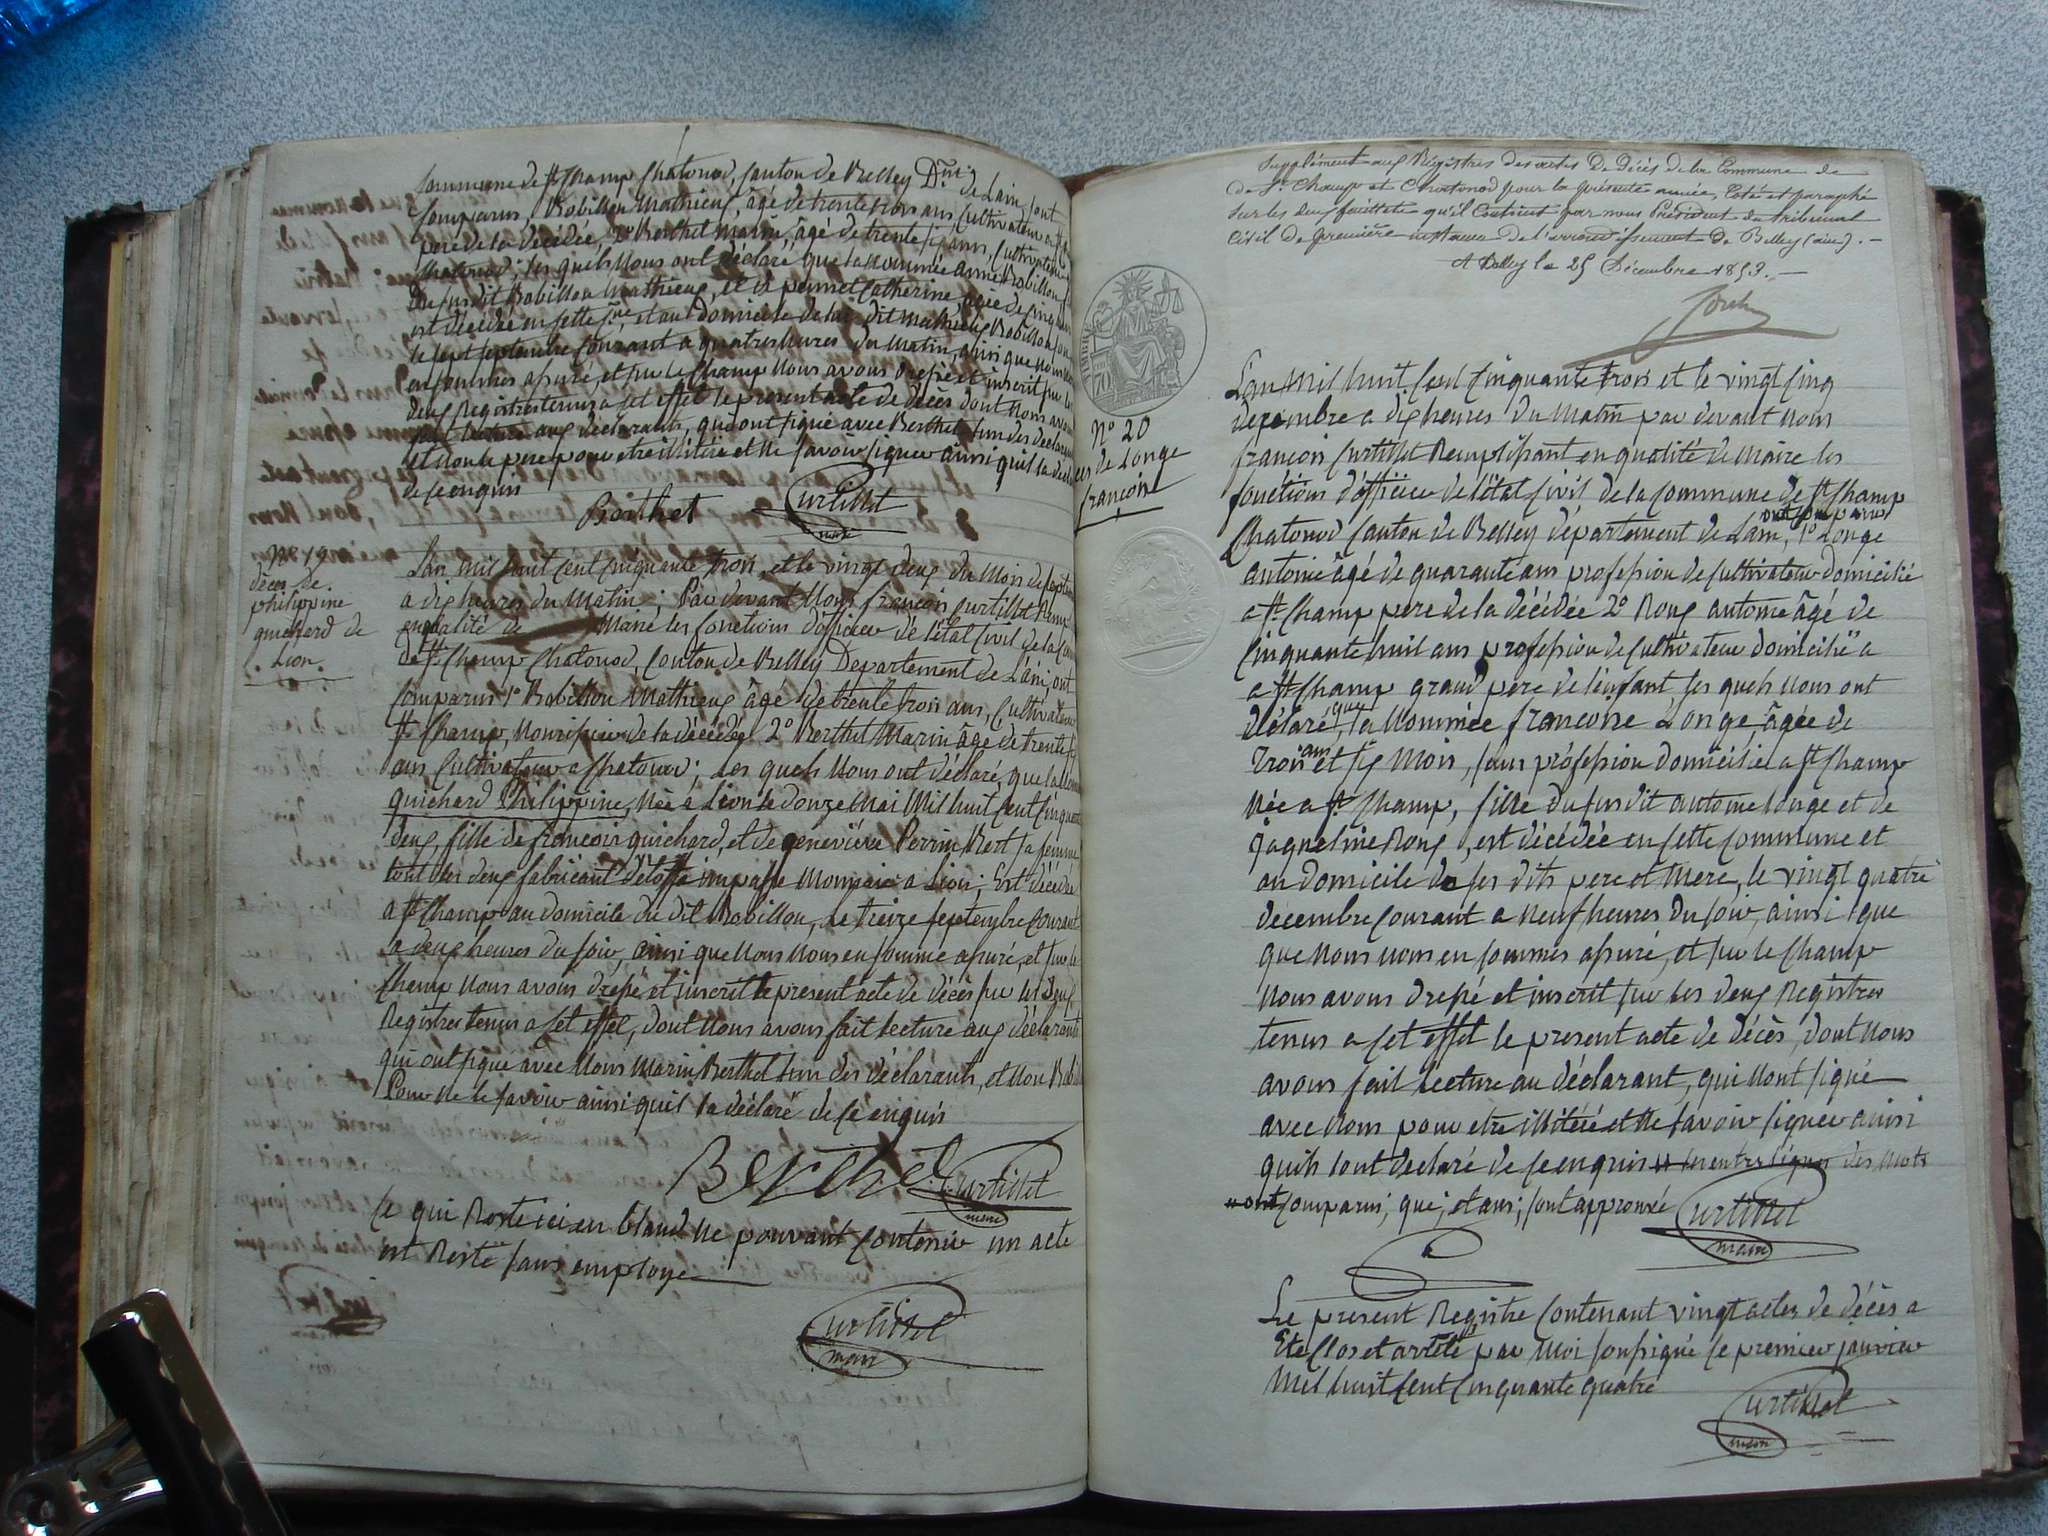 Commune de St Champ Chatonod, Canton de Belley Dmt de Lain, ont
Comparus, Robillon Mathieux, âgé de trente trois ans Cultivateur a St
pere de la décédée, 2° Berthet Marin, âgé de trente six ans, Cultivateur
Chatonod; les quels Nous ont déclaré, que la nommée anne Robillon
du susdit Robillon Mathieux, et de Catherine âgée de cinq
est décédée en cette et au domicile de Mathieux Robillon
le sept septembre courant a quatre heures du Matin, ainsi que nous
en sommes assuré, et sur le Champ Nous avons dressé et inscrit sur les
deux Registres tenus a cet effet le présent acte de décès dont Nous avons
fait lecture aux déclarants, qui ont signé avec Berthet l'un des déclarants
et Non le pere pour etre illitéré et Ne savoir signer ainsi quil la déclaré
de ce enquis
Berthet Curtillet
maire
N° 19
décès de
philippine
guichard de
Lion
Lan Mil huit Cent Cinquante trois, et le vingt deux du Mois de septembre
a dix heures du Matin; Par devant Nous françois Curtillet Remp
en qualité de Maire les fonctions d'officier de létat Civil de la Com
de St Champ Chatonod, Canton de Belley Departement de Lain, ont
Comparus 1° Robillon Mathieux âgé de trente trois ans, Cultivateur
St Champ, Nourrissier de la décédée, 2° Berthet Marin âgé de trente six
ans Cultivateur a Chatonod; les quels Nous ont déclaré, que la Nommée
guichard Philippine, Née a Lion le douze Mai Mil huit Cent Cinquante
deux, fille de françois guichard, et de geneviève Perrin Bert sa femme
tout les deux fabricant détoffe impasse Monnaie a Lion; Est décédée
a St Champ au domicile du dit Robillon, Le treize septembre Courant
a deux heures du soir, ainsi que Nous Nous en somme assuré, et sur le
Champ Nous avons dressé et inscrit le présent acte de décès sur les deux
Registres tenus a Cet effet, dont Nous avons fait lecture aux déclarants
qui ont signe avec Nous Marin Berthet l'un des déclarants, et Non Robillon
Pour Ne le savoir ainsi quil la déclaré de ce enquis
Berthet Curtillet
maire
Ce qui Reste ici en bland Ne pouvant Contenir un acte
est Resté sans employe
Curtillet
maire
Supplément aux Régistres des actes de Décès de la Commune de
de St Champ et Chatonod pour la présente année, Coté et paraphé
sur les deux feuillets qu'il Contient par nous Président du tribunal
Civil de première instance de l'arrondissement de Belley (ain).
A Belley le 25 Décembre 1853.
N° 20
décès de Longe
françoise
Lan Mil huit Cent Cinquante trois et le vingt Cinq
decembre a dix heures du Matin par devant Nous
françois Curtillet Remplissant en qualité de Maire les
fonctions d'officier de létat Civil de la Commune de St Champ
ont comparus
Chatonod Canton de Belley département de Lain, 1° Longe
antoine âgé de quarante ans profession de Cultivateur domicilié
a St Champ pere de la décédée 2° Roux antoine âgé de
Cinquante huit ans profession de Cultivateur domicilié a
a St Champ grand pere de lenfant les quels Nous ont
déclaré, que la Nommée françoise Longe, âgée de
trois ans et six Mois, sans profession domiciliée a St Champ
Née a St Champ, fille du susdit antoine longe et de
jaqueline Roux, est décédée en Cette Commune et
au domicile de ses dits pere et Mere, le vingt quatre
decembre Courant a Neuf heures du soir, ainsi que
que Nous nous en sommes assuré, et sur le Champ
Nous avons dressé et inscrit sur les deux Registres
tenus a Cet effet le présent acte de décès, dont Nous
avons fait lecture au déclarant, qui Nont signé
avec Nous pour etre illitéré et Ne savoir signer ainsi
quils lont declaré de ce enquis les entre lignes des Mots
ont Comparus; que; et ans; sont approuvée Curtillet
maire
Le présent Registre Contenant vingt actes de décès a
Ete Clos et arrêté par Moi soussigné le premier janvier
Mil huit Cent Cinquante quatre
Curtillet
maire